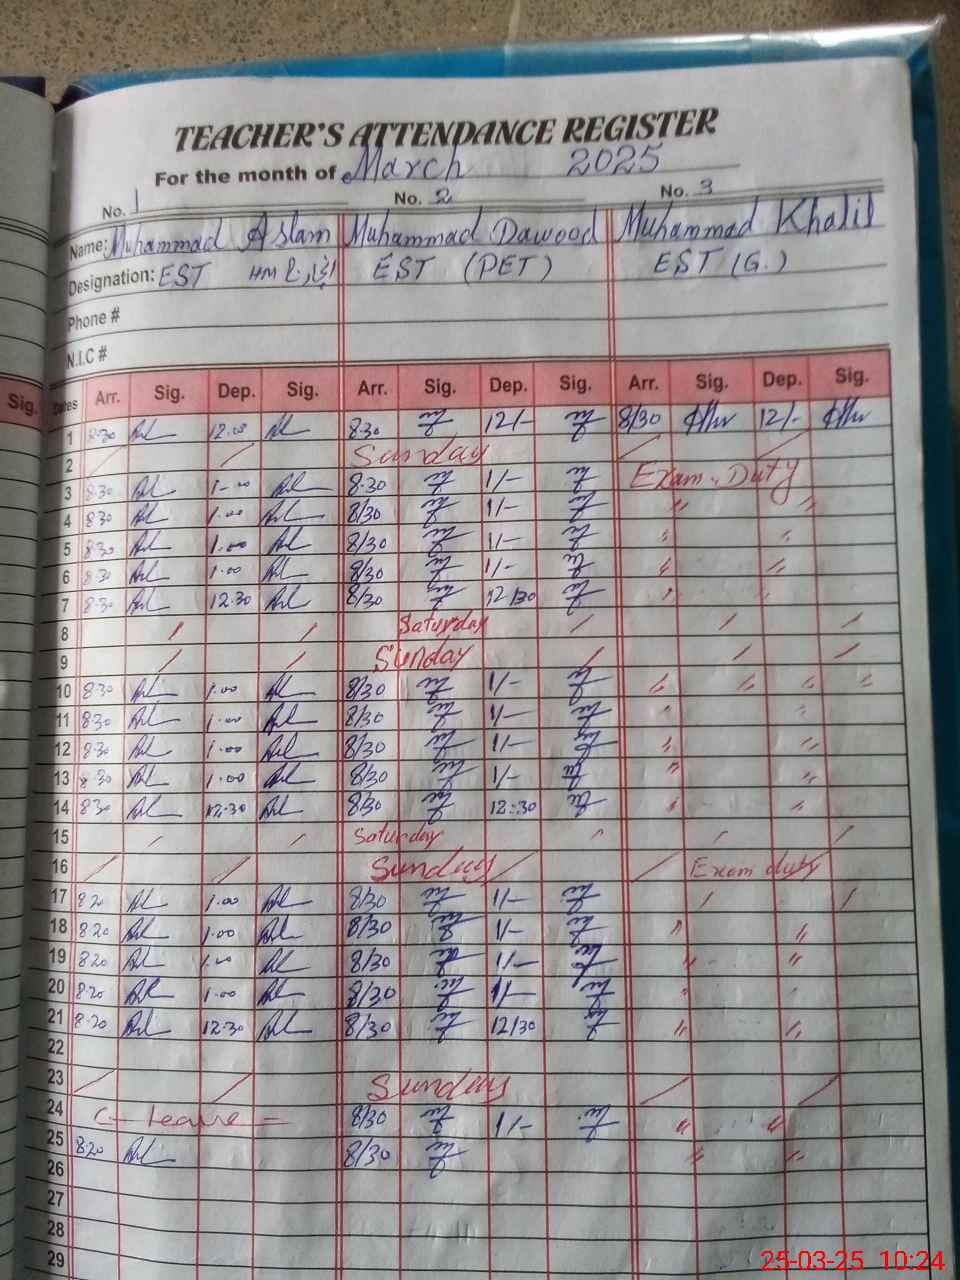 TEACHER'S ATTENDANCE REGISTER
For the month of March 2025
No. 1 No. 2 No. 3
Name: Muhammad Aslam Muhammad Dawood Muhammad Khalil
Designation: EST HM انچارج EST (PET) EST (G.)
Phone #
N.I.C #
Sig. Dates Arr. Sig. Dep. Sig. Arr. Sig. Dep. Sig. Arr. Sig. Dep. Sig.
1 8.30 12.00 8.30 12/- 8/30 12/-
2 Sunday
3 8.30 1.00 8.30 1/- Exam. Duty
4 8.30 1.00 8/30 1/- " "
5 8.30 1.00 8/30 1/- " "
6 8.30 1.00 8/30 1/- " "
7 8.30 12.30 8/30 12/30 " "
8 Saturday
9 Sunday
10 8.30 1.00 8/30 1/- " " " "
11 8.30 1.00 8/30 1/- " "
12 8.30 1.00 8/30 1/- " "
13 8.30 1.00 8/30 1/- " "
14 8.30 12.30 8/30 12:30 " "
15 Saturday
16 Sunday Exam duty
17 8.20 1.00 8/30 1/-
18 8.20 1.00 8/30 1/- " "
19 8.20 1.00 8/30 1/- " "
20 8.20 1.00 8/30 1/- " "
21 8.20 12.30 8/30 12/30 " "
22
23 Sunday
24 C - Leave - 8/30 1/- " "
25 8.20 8/30 " "
26
27
28
29
25-03-25 10:24